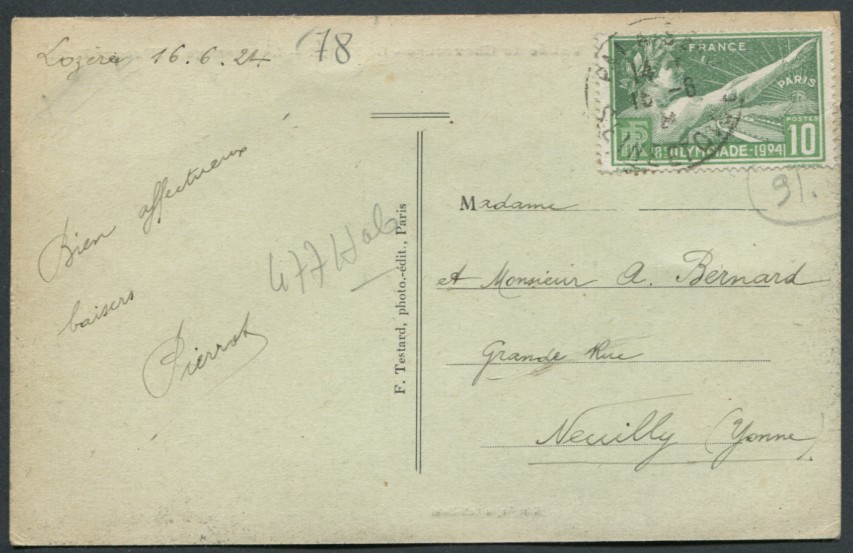 Lozère 16.6.24
78
Bien affectueux
baisers
Pierrot
F. Testard, photo.-édit., Paris
FRANCE
PARIS
POSTES
10
8e OLYMPIADE-1924
14
15 -6
91.
Madame
et Monsieur A. Bernard
Grande Rue
Neuilly (Yonne)